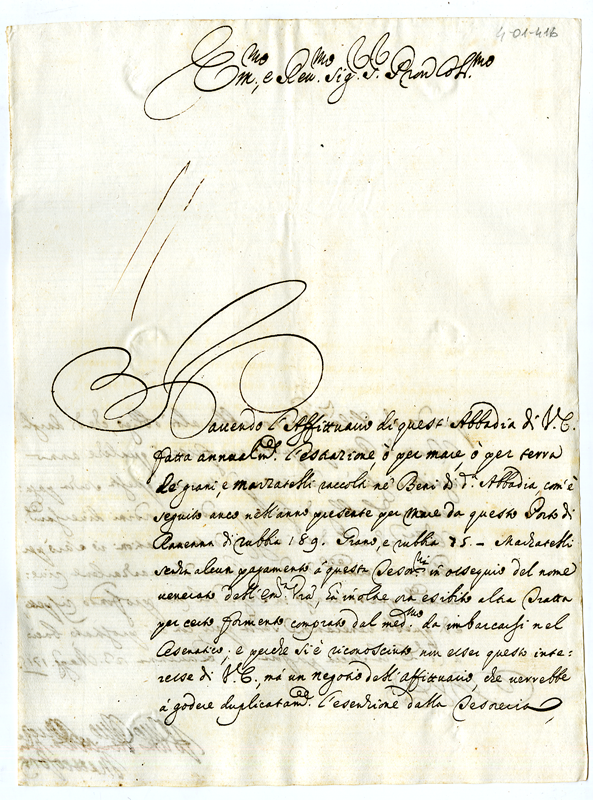 4-01-416
Em.mo, e Rev.mo Sig.r P.ron Col.mo
Havendo l'Affittuario di quest'Abbadia di V.E.
fatta annualm.te l'estrazione ò per mare, ò per terra
de' grani, e marzatelli raccolti ne' Beni di d.a Abbadia, com'è
seguito anco nell'anno presente per mare da questo Porto di
Ravenna di rubbia 189. Grano, e rubbia 75 - Marzatelli
senza alcun pagamento à questa Tesor.ria in ossequio del nome
venerato dell'Em.za Vra, Hà inoltre ora esibito altra Tratta
per certo formento comprato dal med.mo da imbarcarsi nel
Cesenatico; e perche si è riconosciuto non esser questo inte-
resse di V.E., mà un negozio dell'affittuario, che verrebbe
à godere duplicatam.te l'esenzione dalla Tesoreria,